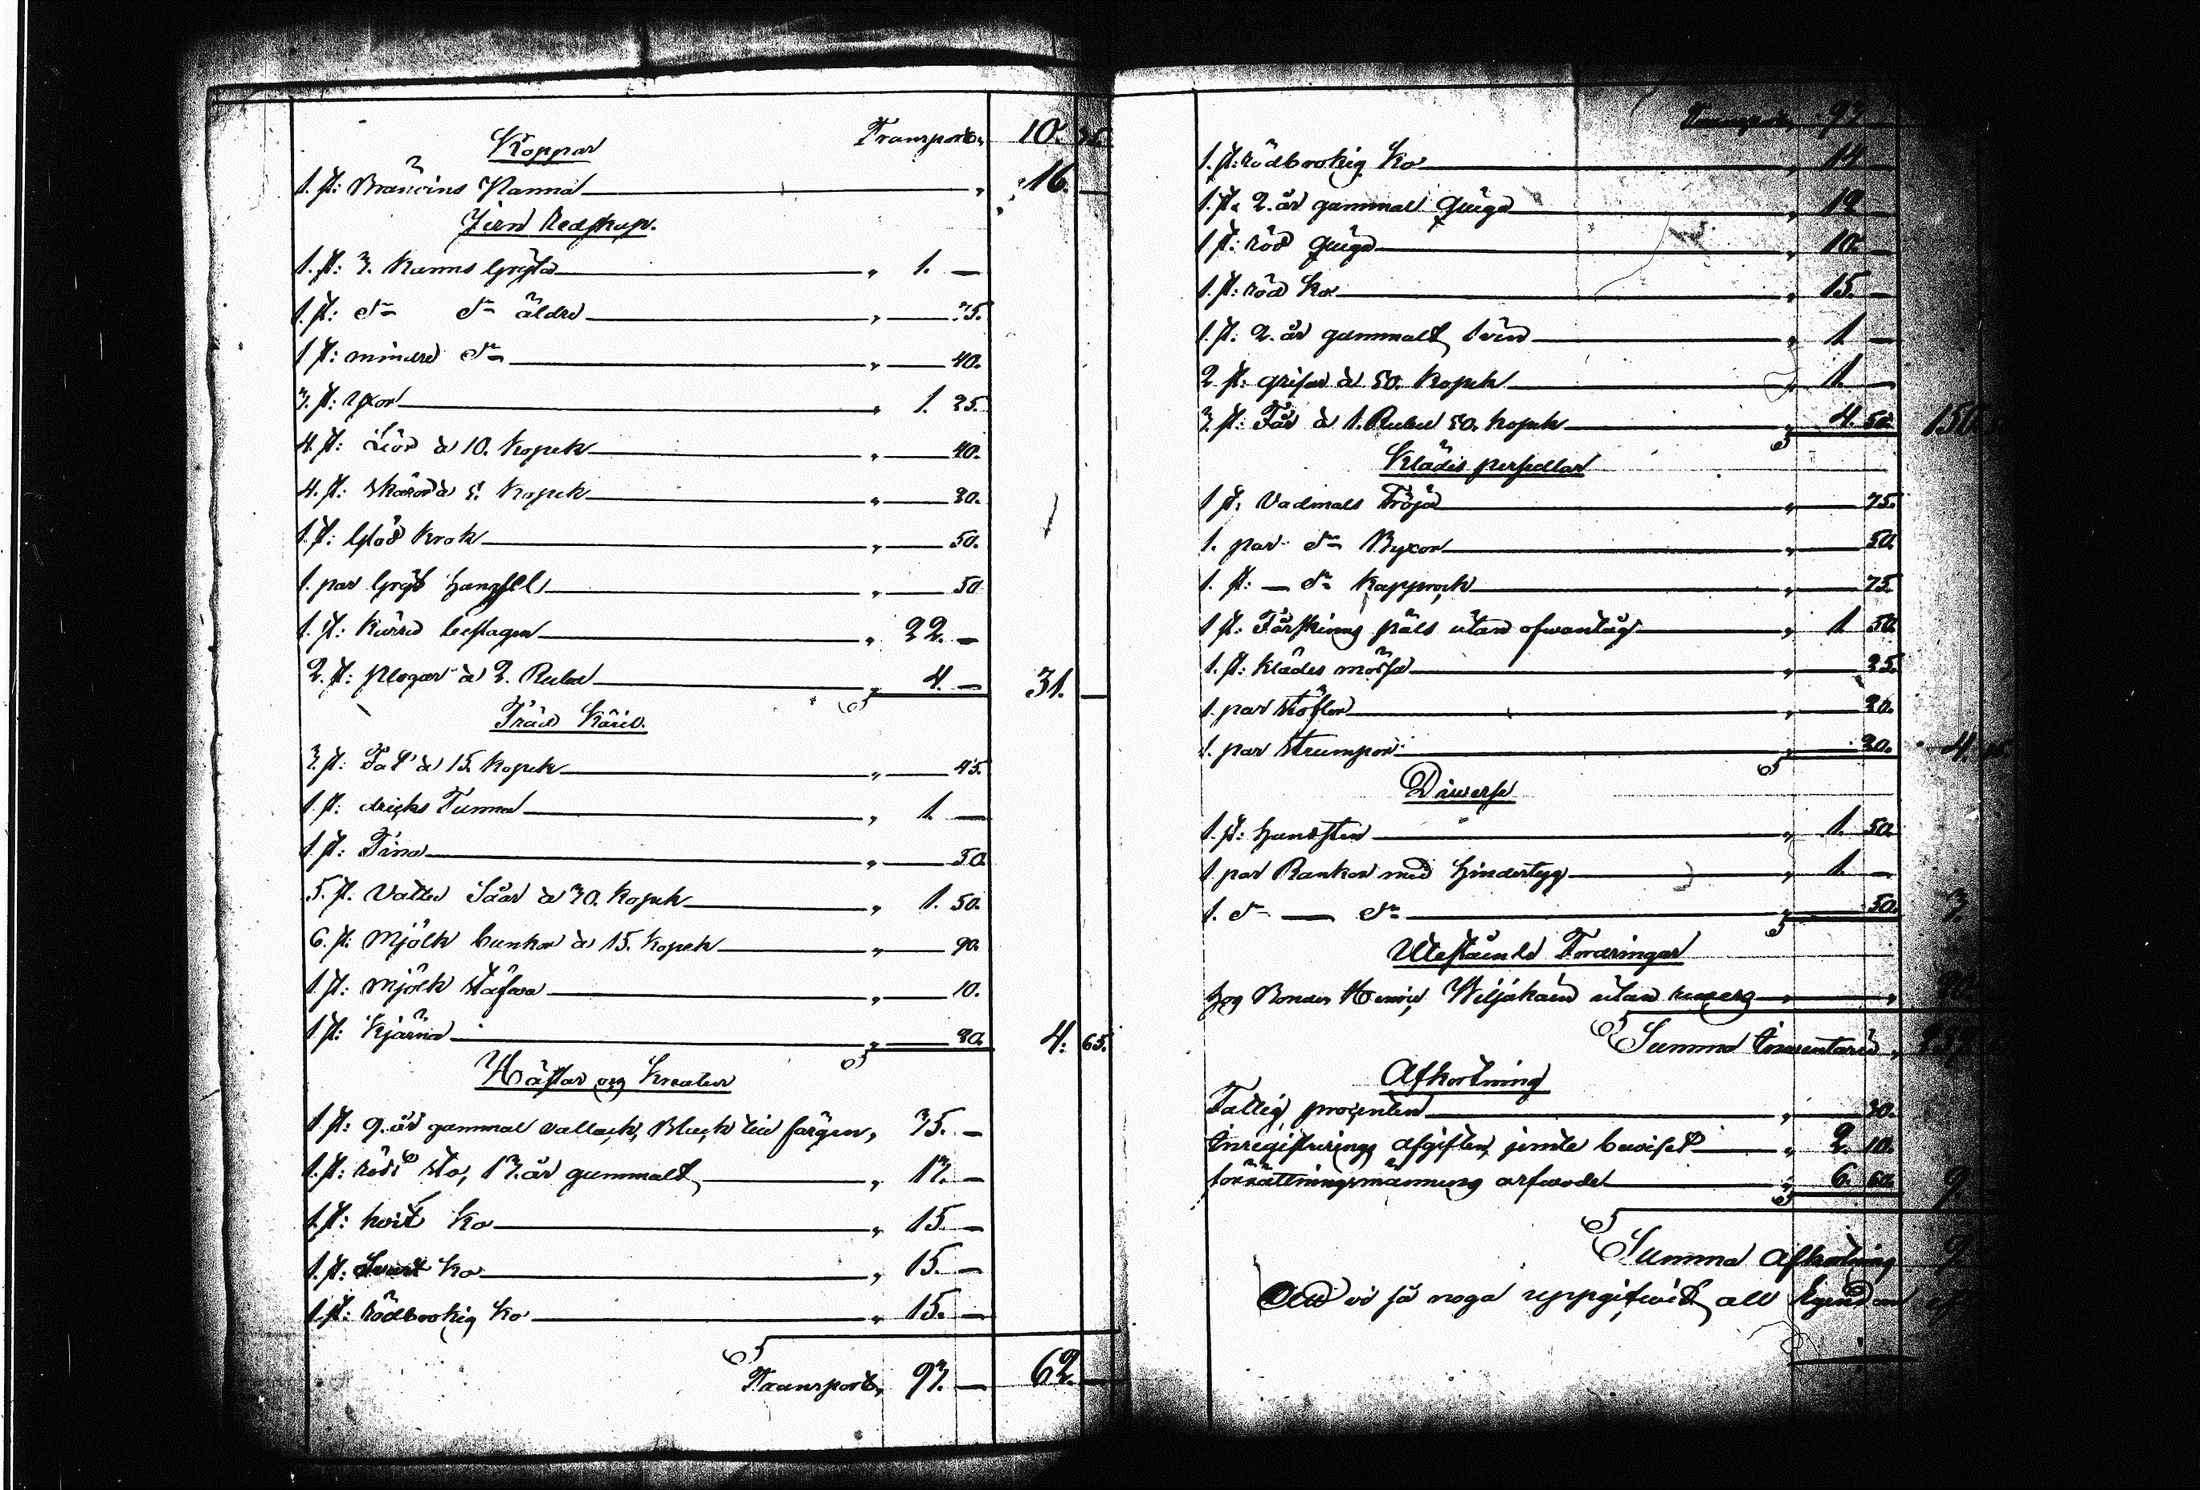 Transport, 10. 35.
Koppar
1. st: Bränvins Panna — " 16. —
Jern Redskap.
1. st: 3. Kanns Gryta — " 1. —
1. st: do do äldre — " — 75.
1 st: mindre do — " — 40.
3. st: Yxor — " 1. 25.
4. st: Liör à 10. Kopek — " — 40.
4. st: Skäror à 5. Kopek — " — 20.
1. st: Glöd Krok — " — 50.
1. par Gryt — " — 50
1. st: Kärra beslagen — " 22. —
2. st: plogar à 2. Rubel — " 4. — 31. —
Träd Käril.
3. st: Fat à 15. Kopek — " — 45.
1 st: dricks Tunna — " 1 —
1 st: Tina — " — 50
5. st. Vatten Såar à 30. Kopek — " 1. 50.
6. st: Mjölk bunkar à 15. Kopek — " — 90.
1 st: Mjölk Stäfva — " — 10.
1 st: Kjärna — " — 20. 4. 65.
Hästar og Kreatur
1 st: 9. år gammal vallack, Black till färgen, 35. —
1. st: rödt Sto, 13. år gammalt — " 13. —
1. st: hvit Ko — " 15. —
1. st: Svart Ko — " 15. —
1. st: Rödbrokig Ko — " 15. —
Transport, 93. — 62. —
Transport, 93
1. st: Rödbrokig Ko — " 14 —
1. st. 2. år gammal Quiga — " 12 —
1 st: Röd Quiga — " 10. —
1. st: röd Ko — " 15. —
1. st: 2. år gammalt Svin — " 1. —
2 st: grisar à 50. Kopek — " 1. —
3. st: Får à 1. Rubel 50. Kopek — " 4. 50. 150
Klädes persedlar
1 st: Vadmals Tröja — " — 75.
1. par do Byxor — " — 50
1. st: — do Kapprock — " — 75.
1 st: Fårskinns päls utan ofvantåg — " 1 50.
1. st: Klädes mössa — " — 25.
1. par Stöflor — " — 20.
1. par Strumpor — " — 20. 4. 15.
Diverse
1. st: Handsten — " 1. 50.
1 par Rankor med Hindertyg — " 1. —
1. do — do — " — 50. 3.
Utestående Fordringar
hog Bonden Henric Wiljakain utan revers — " 20
Summa Inventarii, 237
Afkortning
Fattig procenten — " — 30.
Inregistrerings afgiften jemte beviset — " 2. 10.
förrättningsmännens arfvode — " 6. 60. 9.
Summa Afkortning 9.
vi så noga uppgifvit all Egendom